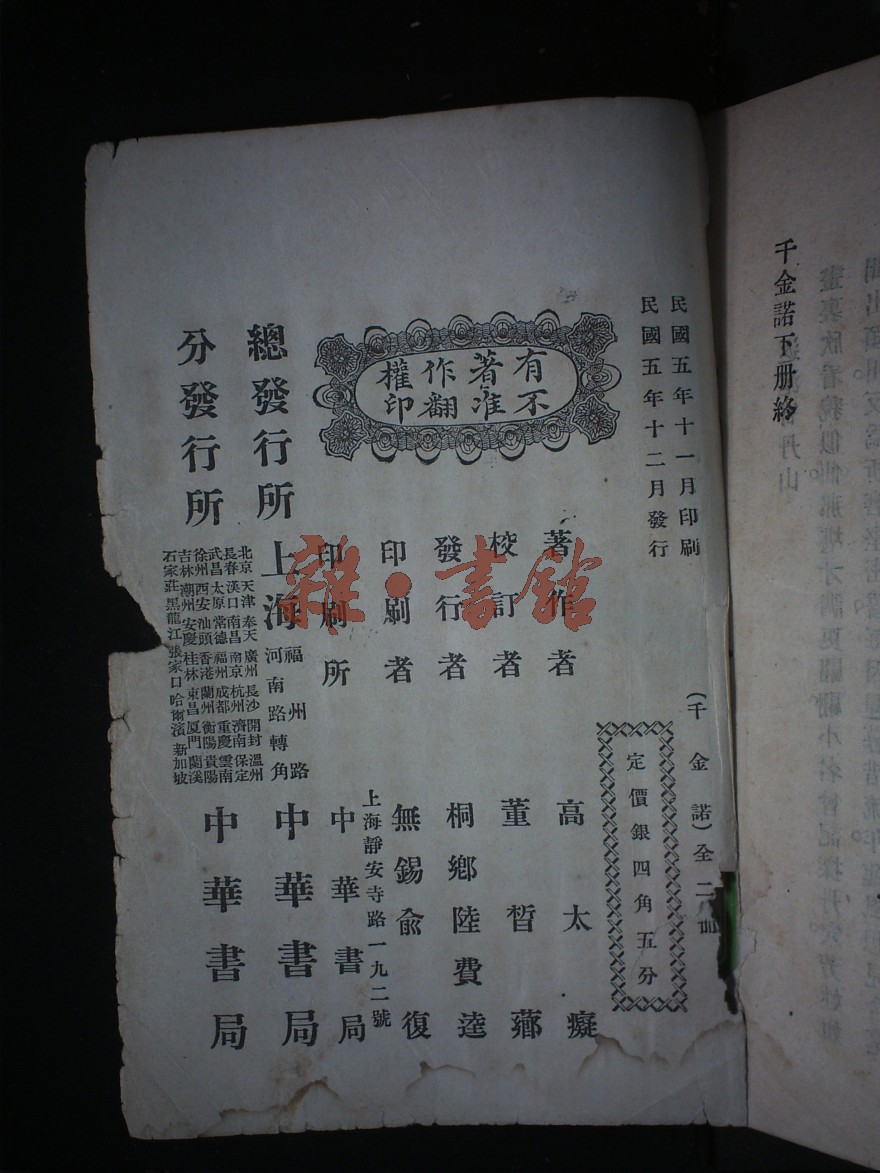 千金諾下册終
民國五年十一月印刷
民國五年十二月發行
(千金諾)全二册
定價銀四角五分
有著作權
不准翻印
著作者 高太癡
校訂者 董晳薌
發行者 桐鄉陸費逵
印刷者 無錫俞復
上海靜安寺路一九二號
印刷所 中華書局
總發行所 上海 福州路
河南路轉角 中華書局
分發行所
北京 天津 奉天 廣州 長沙 開封 溫州
長春 漢口 南昌 南京 杭州 濟南 保定
武昌 太原 常德 福州 成都 重慶 雲南
徐州 西安 汕頭 香港 蘭州 衡陽 貴陽
吉林 潮州 安慶 桂林 東昌 厦門 蘭溪
石家莊 黑龍江 張家口 哈爾濱 新加坡
中華書局
雜·書館